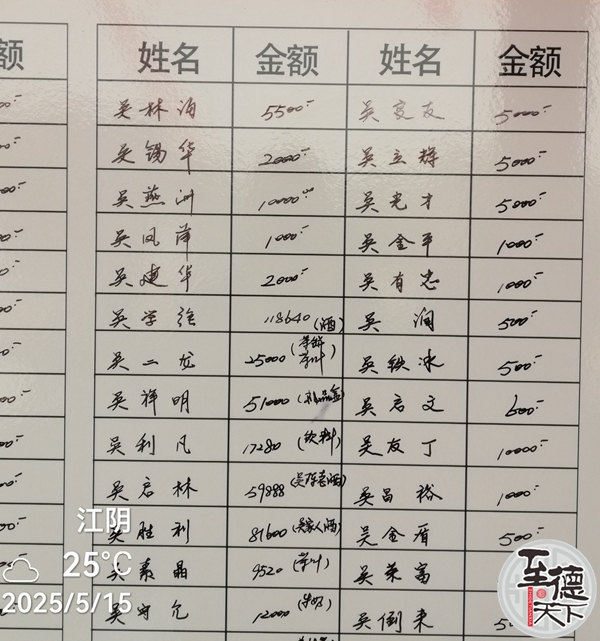 额 姓名 金额 姓名 金额
吴林海 5500.- 吴变友 5000.-
吴锡华 2000.- 吴立辉 5000.-
吴燕洲 10000 吴光才 5000.-
吴凤萍 1000.- 吴金平 1000.-
吴建华 2000.- 吴有忠 1000.-
吴学 118640(酒) 吴润 500.-
吴二龙 25000 吴铁冰 500.-
吴祥明 51000(礼品盒) 吴启文 600.-
吴利凡 17280(饮料) 吴友丁 10000.-
吴启林 59888 吴昌裕 1000.-
吴胜利 81600(吴家人酒) 吴金盾 500.-
吴素晶 9520 吴荣富
吴守 12000 吴倒来
江阴
25°C
2025/5/15
至德天下